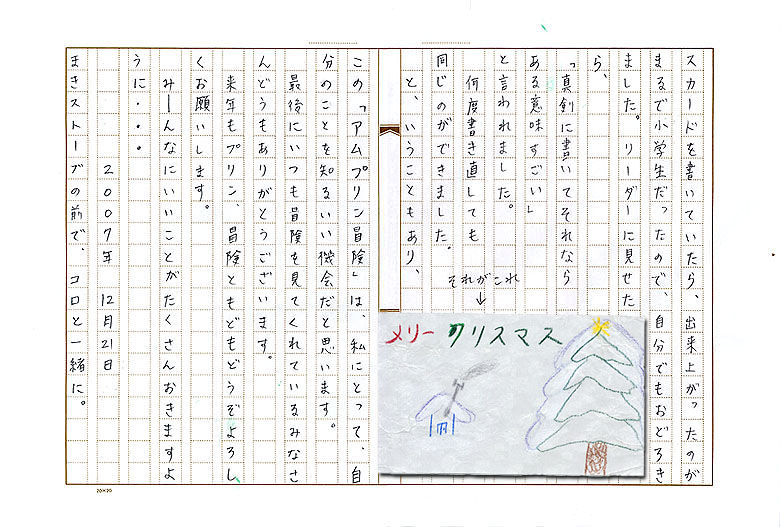 スカードを書いていたら、出来上がったのが
まるで小学生だったので、自分でもおどろき
ました。リーダーに見せた
ら、
「真剣に書いてそれなら
ある意味すごい」
と言われました。
何度書き直しても
同じのができました。
と、いうこともあり、
それがこれ
↓
メリークリスマス
この「アムプリン冒険」は、私にとって、自
分のことを知るいい機会だと思います。
最後にいつも冒険を見てくれているみなさ
んどうもありがとうございます。
来年もプリン、冒険ともどもどうぞよろし
くお願いします。
みーんなにいいことがたくさんおきますよ
うに・・・
2007年 12月21日
まきストーブの前で、コロと一緒に。
20×20